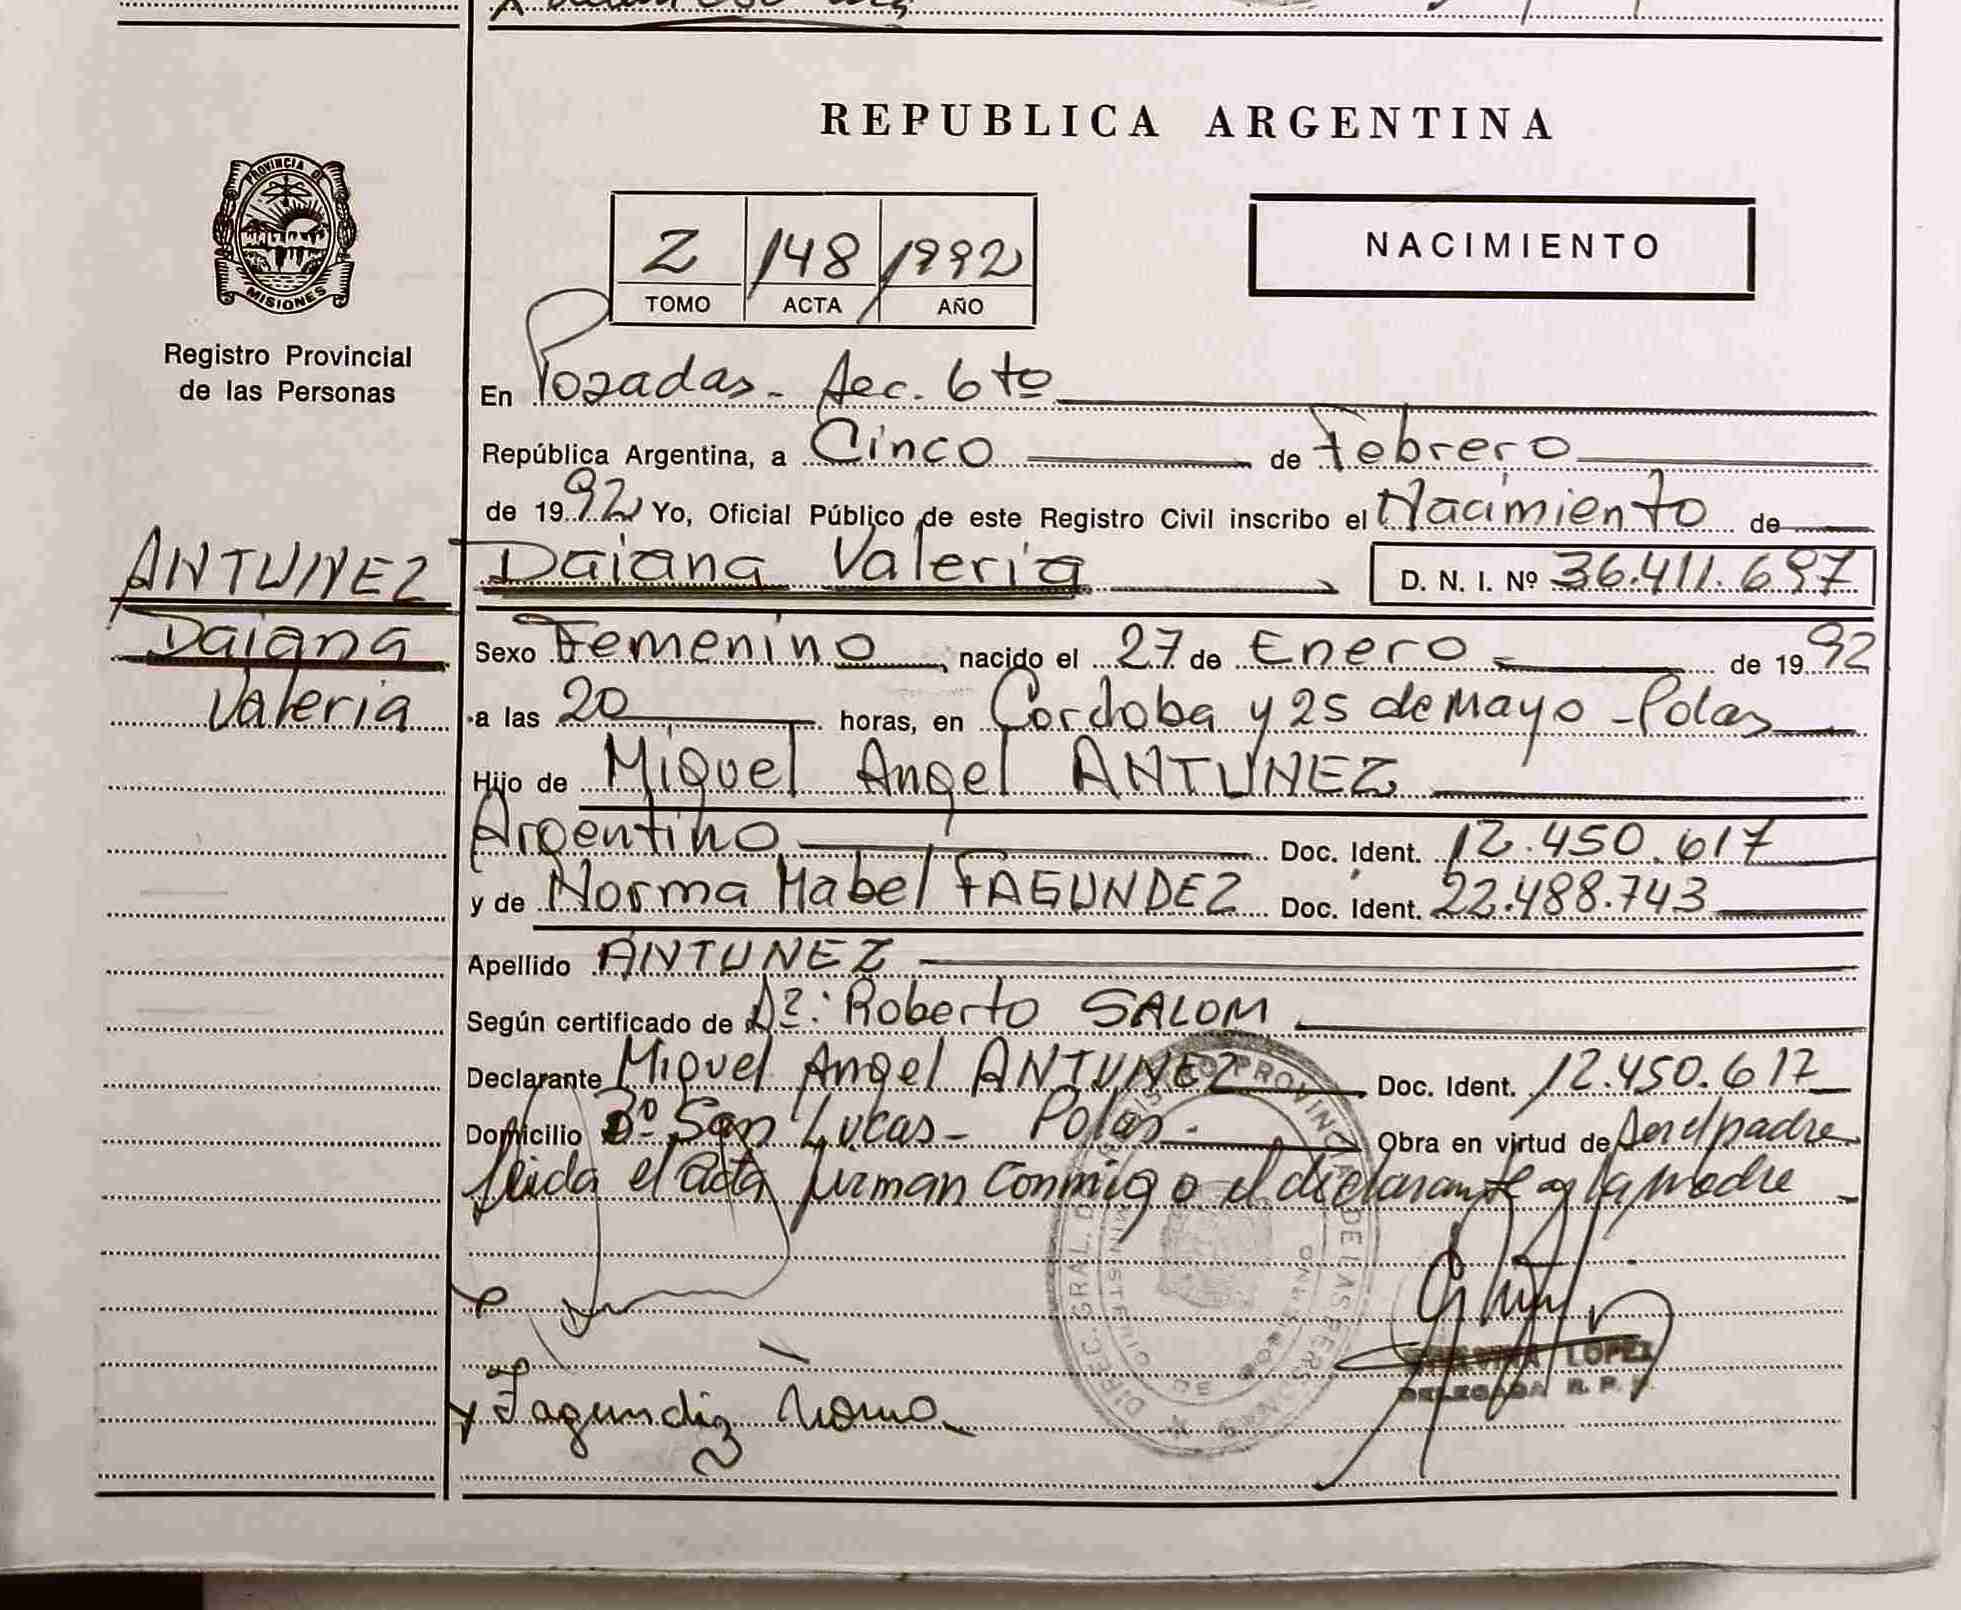 REPUBLICA ARGENTINA
PROVINCIA DE
MISIONES
Registro Provincial
de las Personas
NACIMIENTO
2 148 1992
TOMO ACTA AÑO
En Posadas - Sec. 6to
República Argentina, a Cinco de Febrero
de 1992 Yo, Oficial Público de este Registro Civil inscribo el Nacimiento de
ANTUNEZ
Daiana
Valeria
Daiana Valeria D. N. I. Nº 36.411.697
Sexo Femenino, nacido el 27 de Enero de 1992
a las 20 horas, en Cordoba y 25 de Mayo - Pdas
Hijo de Miguel Angel ANTUNEZ
Argentino Doc. Ident. 12.450.617
y de Norma Mabel FAGUNDEZ Doc. Ident. 22.488.743
Apellido ANTUNEZ
Según certificado de Dr: Roberto SALOM
Declarante Miguel Angel ANTUNEZ Doc. Ident. 12.450.617
Domicilio Bº San Lucas - Pdas. Obra en virtud de Ser el padre
leida el acta firman conmigo el declarante y la madre
LOPEZ
DELEGADA R. P. P.
Fagundez Norma